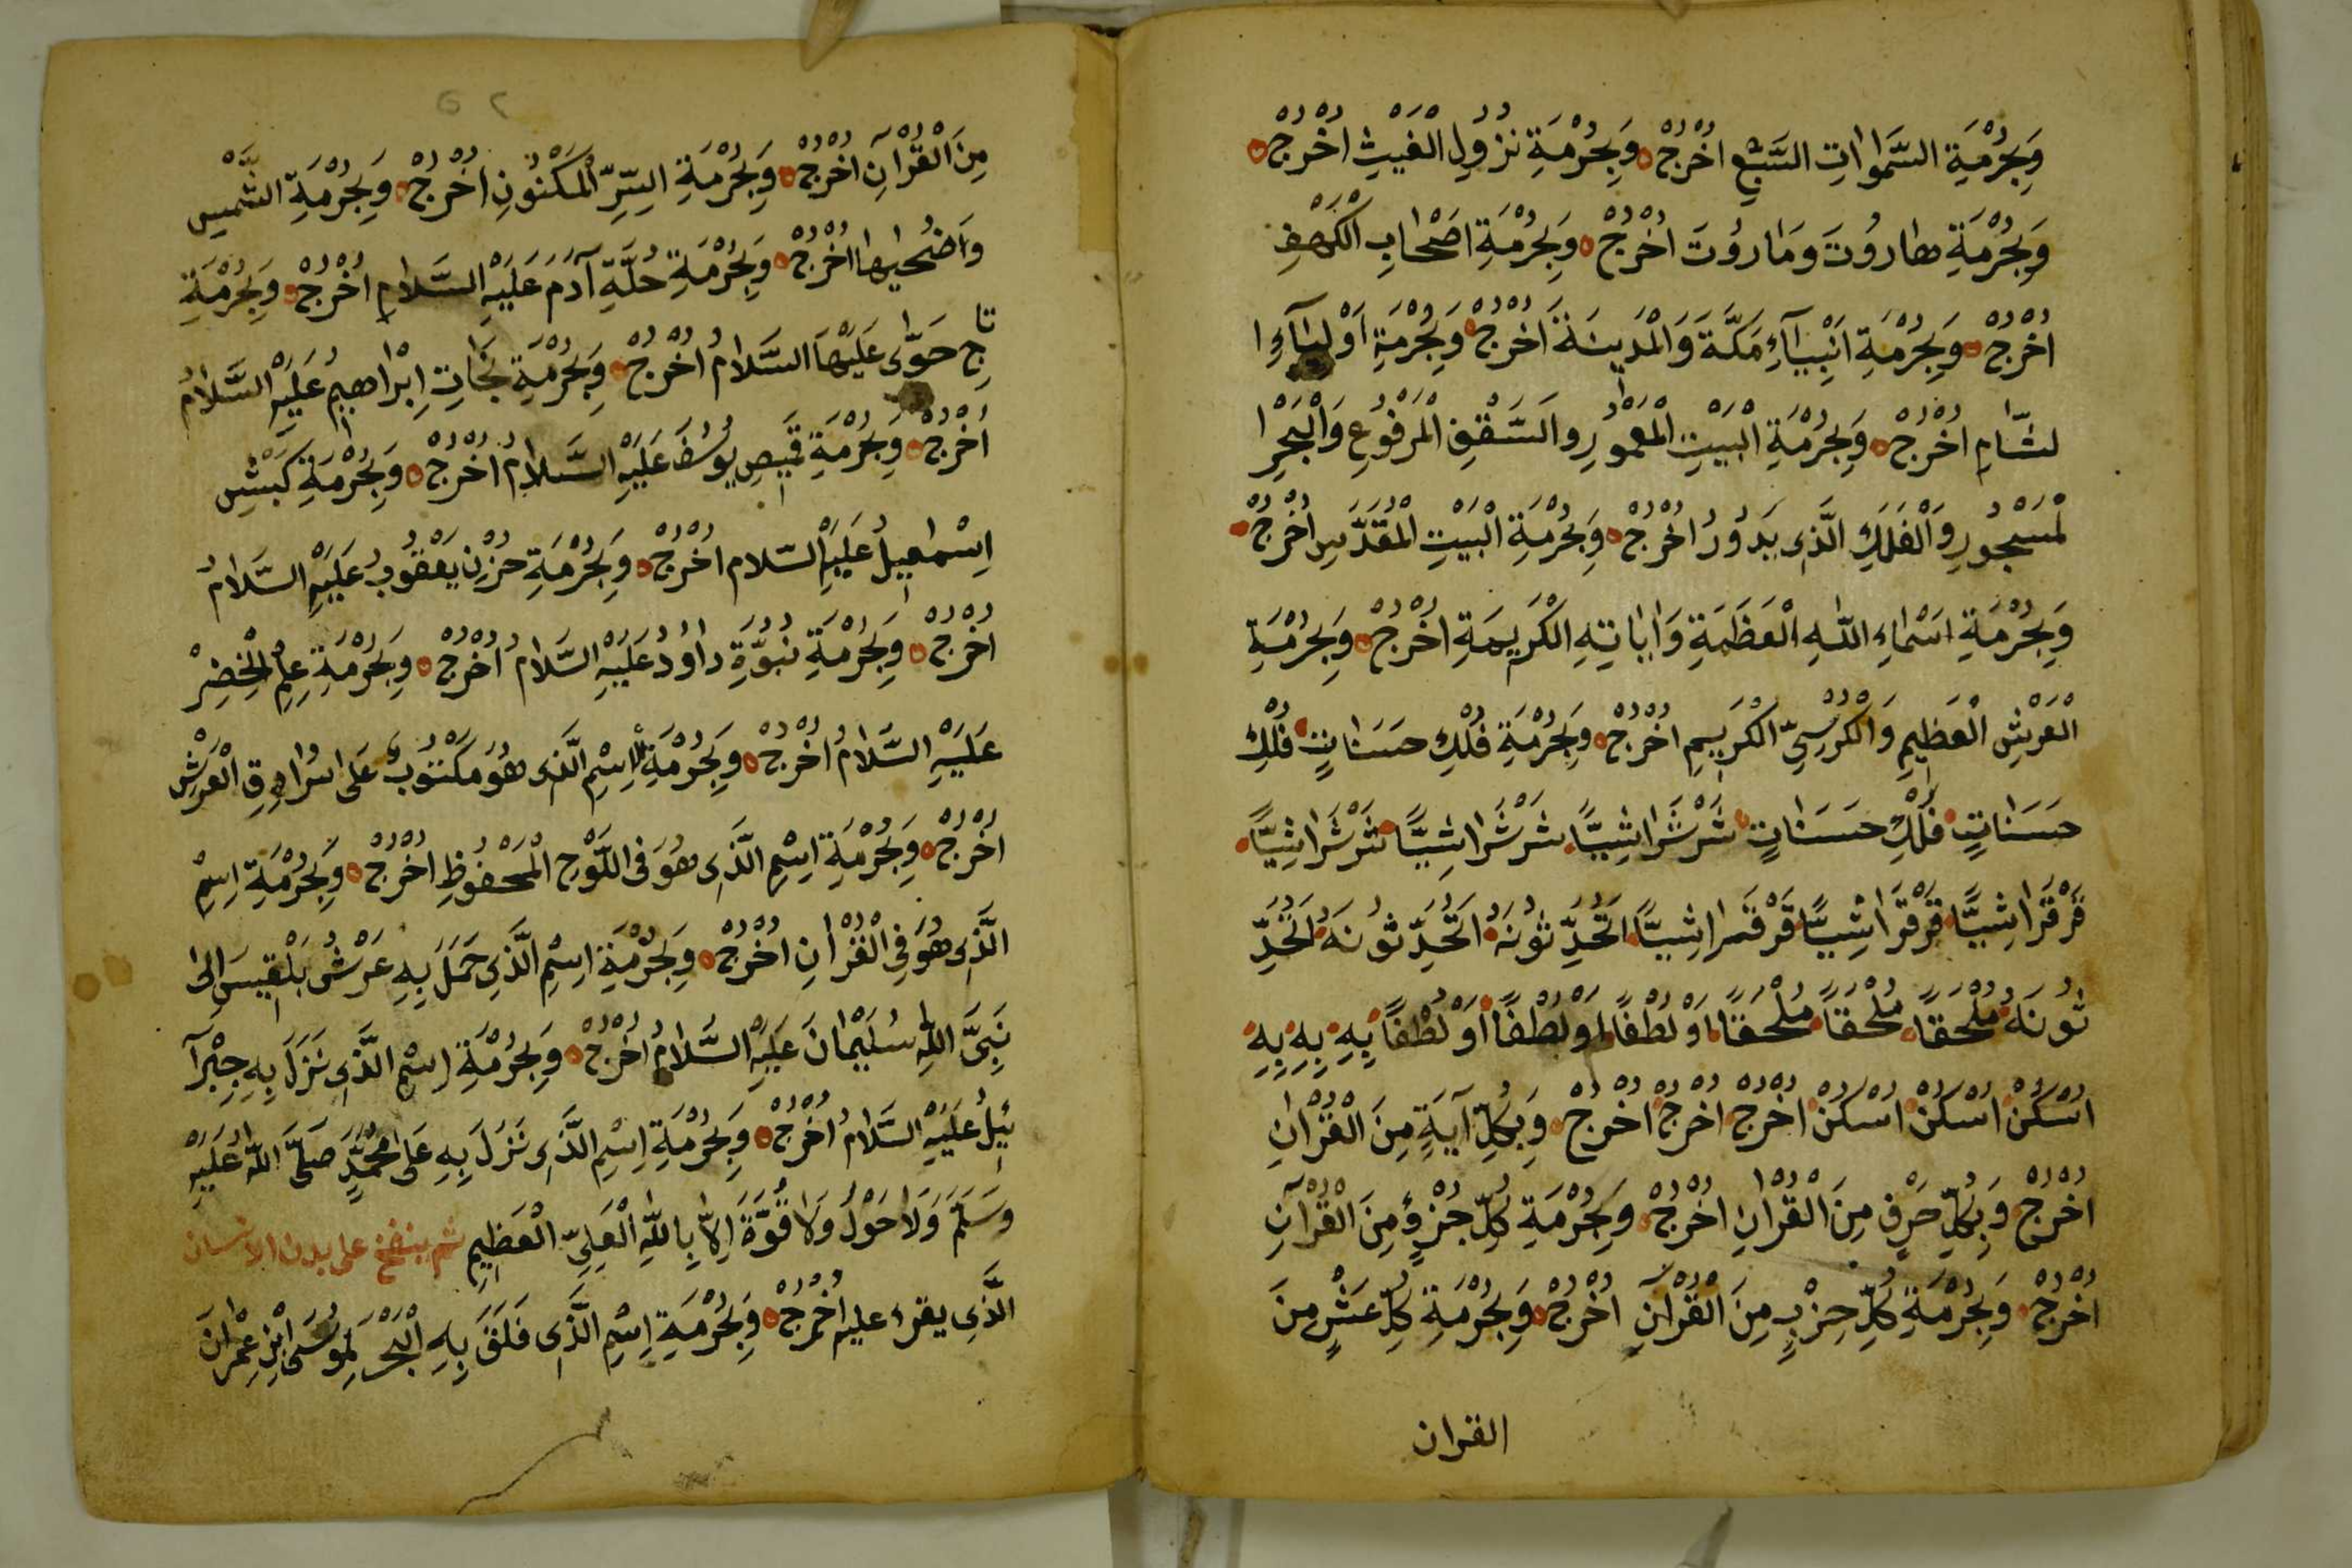 وَبِحُرْمَةِ السَّمٰوَاتِ السَّبْعِ اُخْرُجْ وَبِحُرْمَةِ نُزُولِ الْغَيْثِ اُخْرُجْ
وَبِحُرْمَةِ هٰارُوتَ وَمٰارُوتَ اُخْرُجْ وَبِحُرْمَةِ اَصْحٰابِ الْكَهْفِ
اُخْرُجْ وَبِحُرْمَةِ اَنْبِيَآءِ مَكَّةَ وَالْمَدِينَةَ اُخْرُجْ وَبِحُرْمَةِ اَوْلِيَآءِ ا
لشَّامِ اُخْرُجْ وَبِحُرْمَةِ الْبَيْتِ الْمَعْمُورِ وَالسَّقْفِ الْمَرْفُوعِ وَالْبَحْرِ ا
لْمَسْجُورِ وَالْفَلَكِ الَّذِى يَدُورُ اُخْرُجْ وَبِحُرْمَةِ الْبَيْتِ الْمُقَدَّسِ اُخْرُجْ
وَبِحُرْمَةِ اَسْمَاءِ اللّٰهِ الْعَظَمَةِ وَاٰيَاتِهِ الْكَرِيمَةِ اُخْرُجْ وَبِحُرْمَةِ
الْعَرْشِ الْعَظِيمِ وَالْكُرْسِىِّ الْكَرِيمِ اُخْرُجْ وَبِحُرْمَةِ فُلْكِ حَسَنٰاتٍ فُلْكِ
حَسَنٰاتٍ فُلْكِ حَسَنٰاتٍ شَرْشَرٰاشِيًّا شَرْشَرٰاشِيًّا شَرْشَرٰاشِيًّا
قَرْقَرٰاشِيًّا قَرْقَرٰاشِيًّا قَرْقَمَرٰاشِيًّا اَتُحَدِّثُونَهُ اَتُحَدِّثُونَهُ اَتُحَدِّ
ثُونَهُ مُلْحَقًا مُلْحَقًا مُلْحَقًا اَوْلُطْفًا اَوْلُطْفًا اَوْلُطْفًا بِهِ بِهِ بِهِ
اُسْكُنْ اُسْكُنْ اُسْكُنْ اُخْرُجْ اُخْرُجْ اُخْرُجْ وَبِكُلِّ آيَةٍ مِنَ الْقُرْاٰنِ
اُخْرُجْ وَبِكُلِّ حَرْفٍ مِنَ الْقُرْاٰنِ اُخْرُجْ وَبِحُرْمَةِ كُلِّ جُزْؤٍ مِنَ الْقُرْآنِ
اُخْرُجْ وَبِحُرْمَةِ كُلِّ حِزْبٍ مِنَ الْقُرْآنِ اُخْرُجْ وَبِحُرْمَةِ كُلِّ عَشْرٍ مِنَ
القران
مِنَ الْقُرْآنِ اُخْرُجْ وَبِحُرْمَةِ السِّرِّ الْمَكْنُونِ اُخْرُجْ وَبِحُرْمَةِ الشَّمْسِ
وَاَضُحٰيهَا اُخْرُجْ وَبِحُرْمَةِ حُلَّةِ آدَمَ عَلَيْهِ السَّلَامُ اُخْرُجْ وَبِحُرْمَةِ
تَاجِ حَوّٰى عَلَيْهَا السَّلَامُ اُخْرُجْ وَبِحُرْمَةِ نَجَاتِ اِبْرٰاهِيمُ عَلَيْهِ السَّلَامُ
اُخْرُجْ وَبِحُرْمَةِ قَمِيصِ يُوسُفَ عَلَيْهِ السَّلَامُ اُخْرُجْ وَبِحُرْمَةِ كَبْشِ
اِسْمٰعِيلُ عَلَيْهِ السَّلام اُخْرُجْ وَبِحُرْمَةِ حُزْنِ يَعْقُوبُ عَلَيْهِ السَّلَامُ
اُخْرُجْ وَبِحُرْمَةِ نُبُوَّةِ دٰاوُدُ عَلَيْهِ السَّلَامُ اُخْرُجْ وَبِحُرْمَةِ عِلْمِ الْخِضِرْ
عَلَيْهِ السَّلَامُ اُخْرُجْ وَبِحُرْمَةِ اِسْمِ الَّذِى هُوَ مَكْتُوبٌ عَلَى سُرَادِقِ الْعَرْشِ
اُخْرُجْ وَبِحُرْمَةِ اِسْمِ الَّذِى هُوَ فِى اللَّوْحِ الْمَحْفُوظِ اُخْرُجْ وَبِحُرْمَةِ اِسْمِ
الَّذِى هُوَ فِى الْقُرْاٰنِ اُخْرُجْ وَبِحُرْمَةِ اِسْمِ الَّذِى حَمَلَ بِهِ عَرْشُ بَلْقِيسَ اِلىٰ
نَبِىَّ اللّٰهِ سُلَيْمٰانَ عَلَيْهِ السَّلَامُ اُخْرُجْ وَبِحُرْمَةِ اِسْمِ الَّذِى نَزَلَ بِهِ جِبْرَآ
ئِيلُ عَلَيْهِ السَّلَامُ اُخْرُجْ وَبِحُرْمَةِ اِسْمِ الَّذِى نَزَلَ بِهِ عَلىٰ مُحَمَّدٍ صَلَّى اللّٰهُ عَلَيْهِ
وَسَلَّمَ وَلَاحَوْلَ وَلَا قُوَّةَ اِلَّا بِاللّٰهِ الْعَلِىِّ الْعَظِيمِ ثم ينفخ على بدن الانسان
الَّذِى يقرء عليه اُخْرُجْ وَبِحُرْمَةِ اِسْمِ الَّذِى فَلَقَ بِهِ الْبَحْرَ لِمُوسَى ابْنِ عِمْرٰانَ